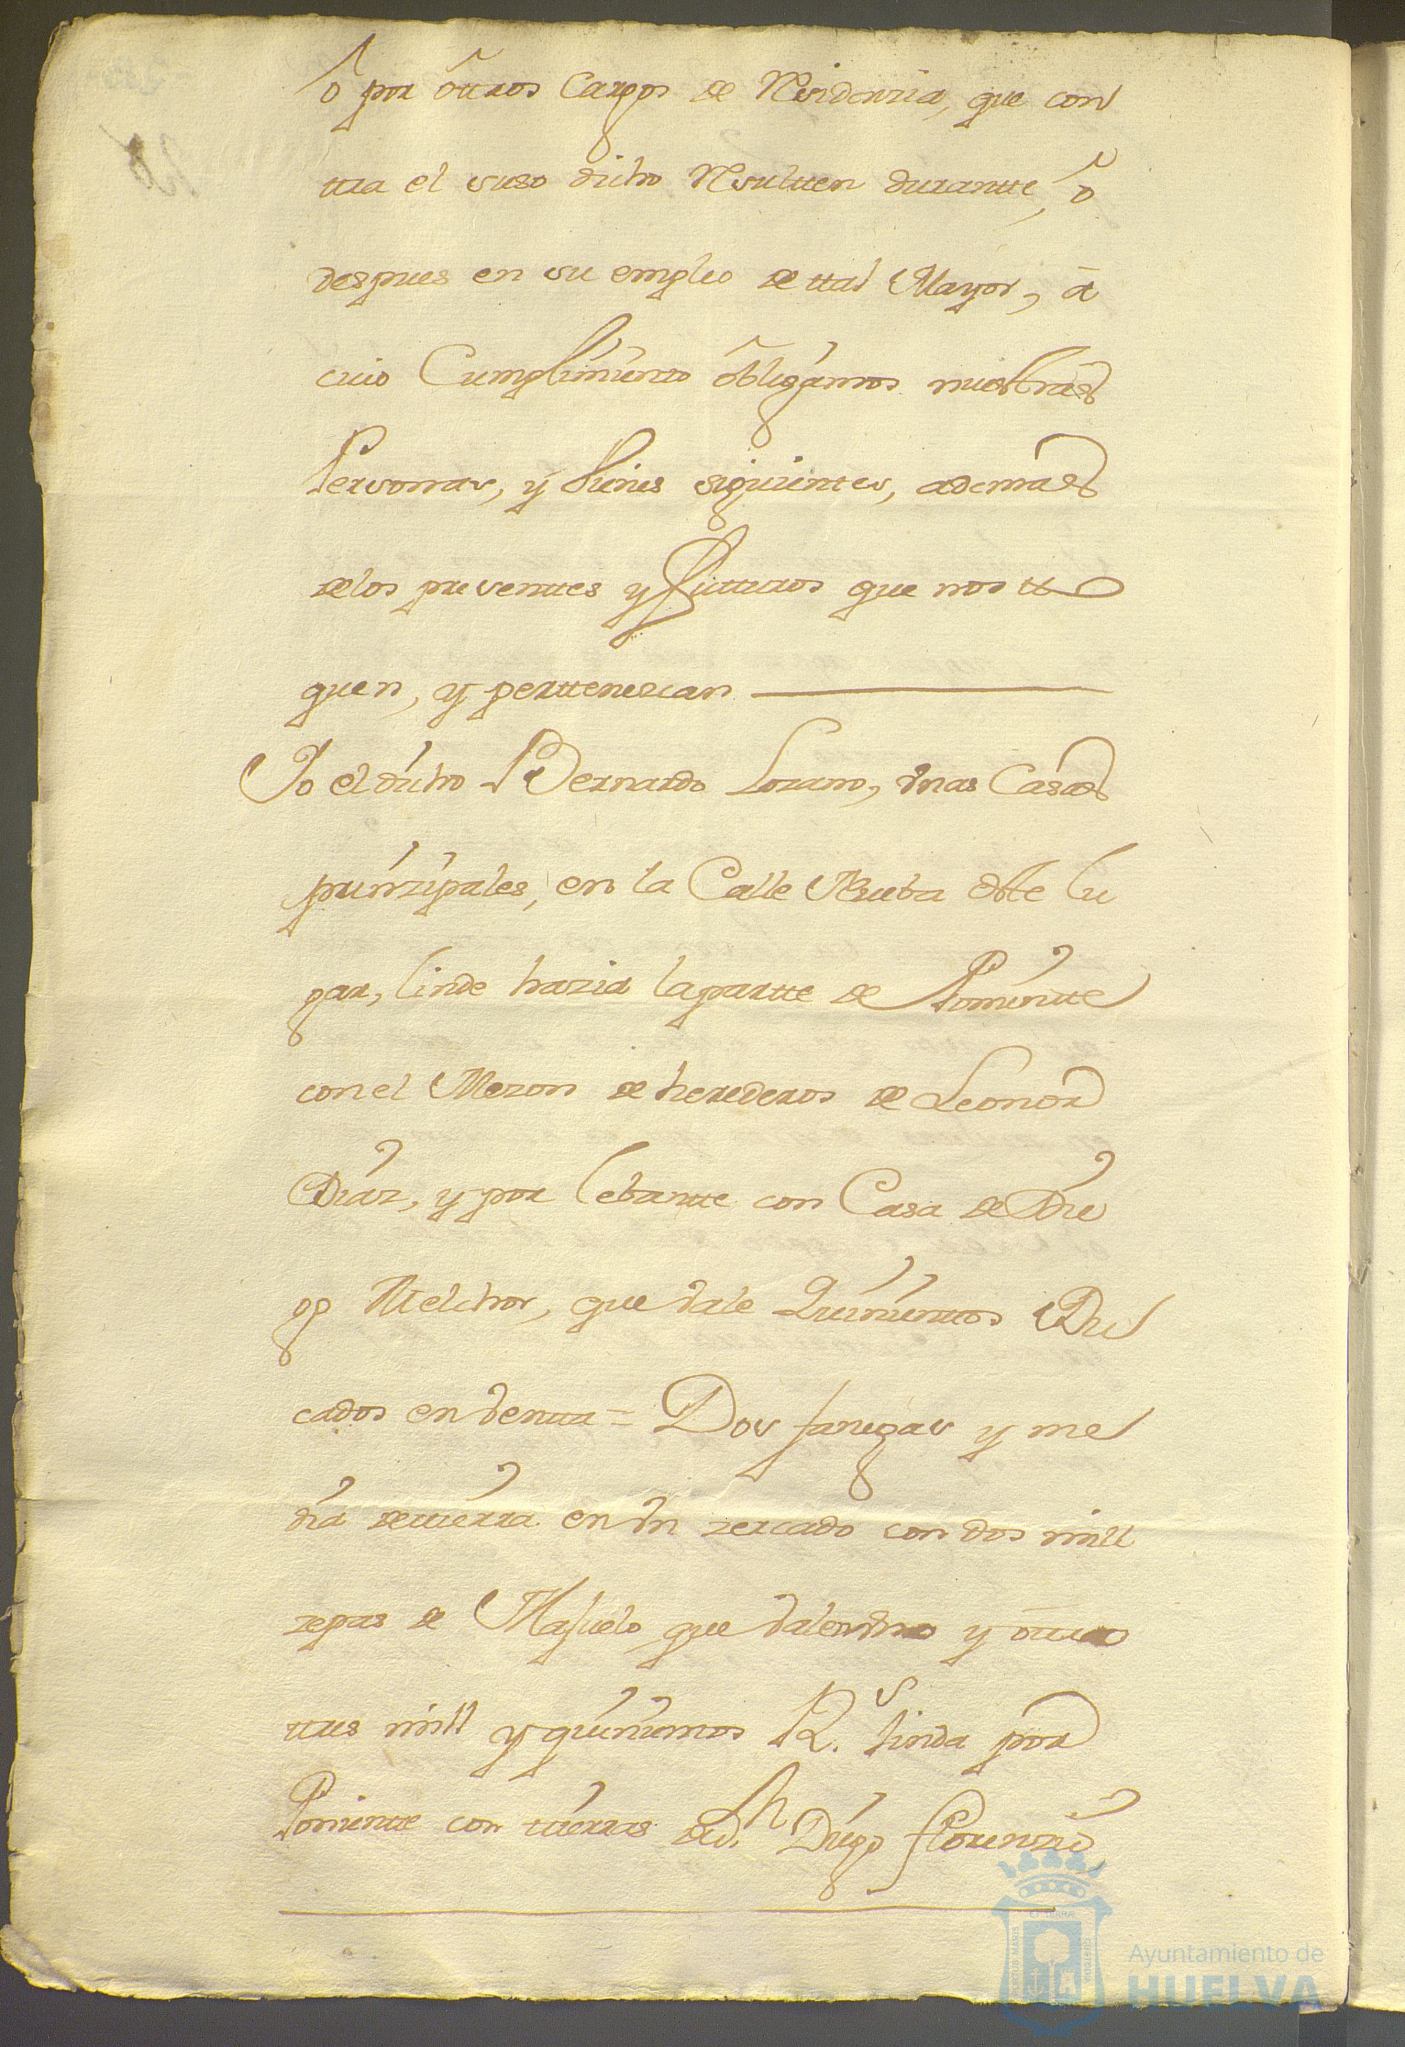 ô por ôttros Cargos de Residenzia, que con
ttra el suso dicho Resultten durantte, ô
despues en su empleo de ttal Mayor, â
cuio Cumplimiento ôbligâmos nuestras
Personas, y bienes siguientes, ademas
delos presenttes y futturos que nos tto
quen, y perttenezcan
Yo el dicho Bernardo Lozano, Vnas Casas
prinzipales, en la Calle Nueba deste lu
gar, linde hazia laparte de Ponientte
conel Mezon de herederos de Leonor
Diaz, y por lebantte con Casa de Die
go Melchor, que Vale Quinienttos Du
cados en Ventta = Dos fanegas y me
dia dettierra en Vn zercado con dos mill
zepas de Majuelo que Valen Vno y ôttro
ttres mill y quinientos R.s linda por
Ponientte con tierras de D.n Diego florenzio
Ayuntamiento de
HUELVA